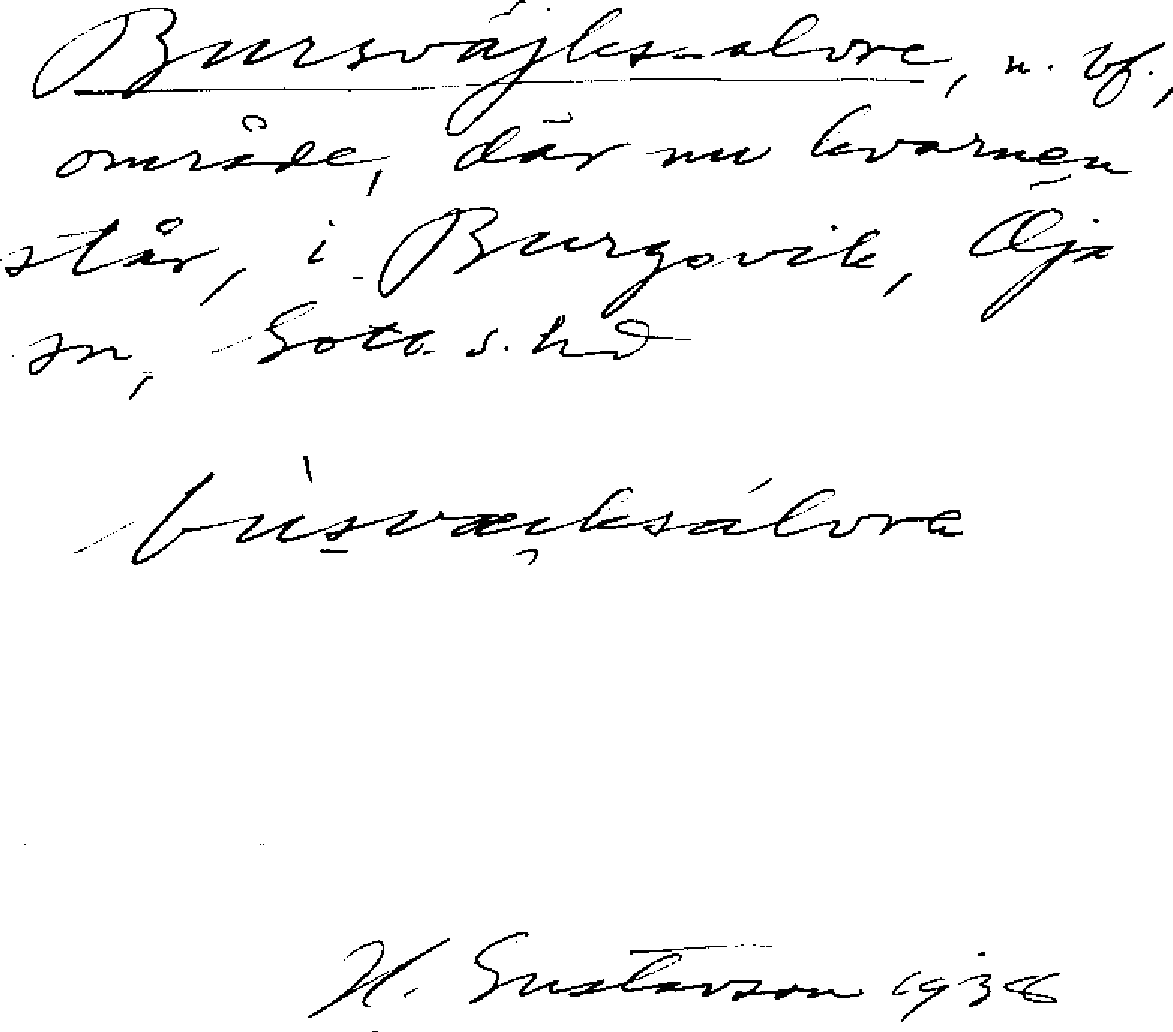 Bursväjks-alvre, n. bf.,
område, där nu kvarnen
står, i Burgsvik, Öja
sn, Gotl. s. hd
H. Gustavson 1938